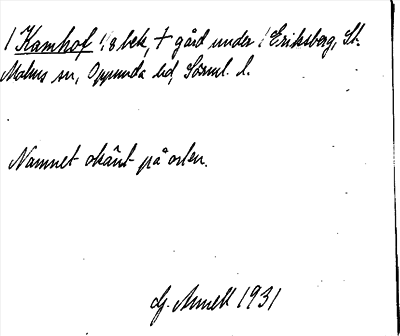 1 Kamhof 1/8 bek, + gård under 1 Eriksberg, St.
Malms sn, Oppunda hd, Sörml. l.
Namnet okänt på orten.
1931